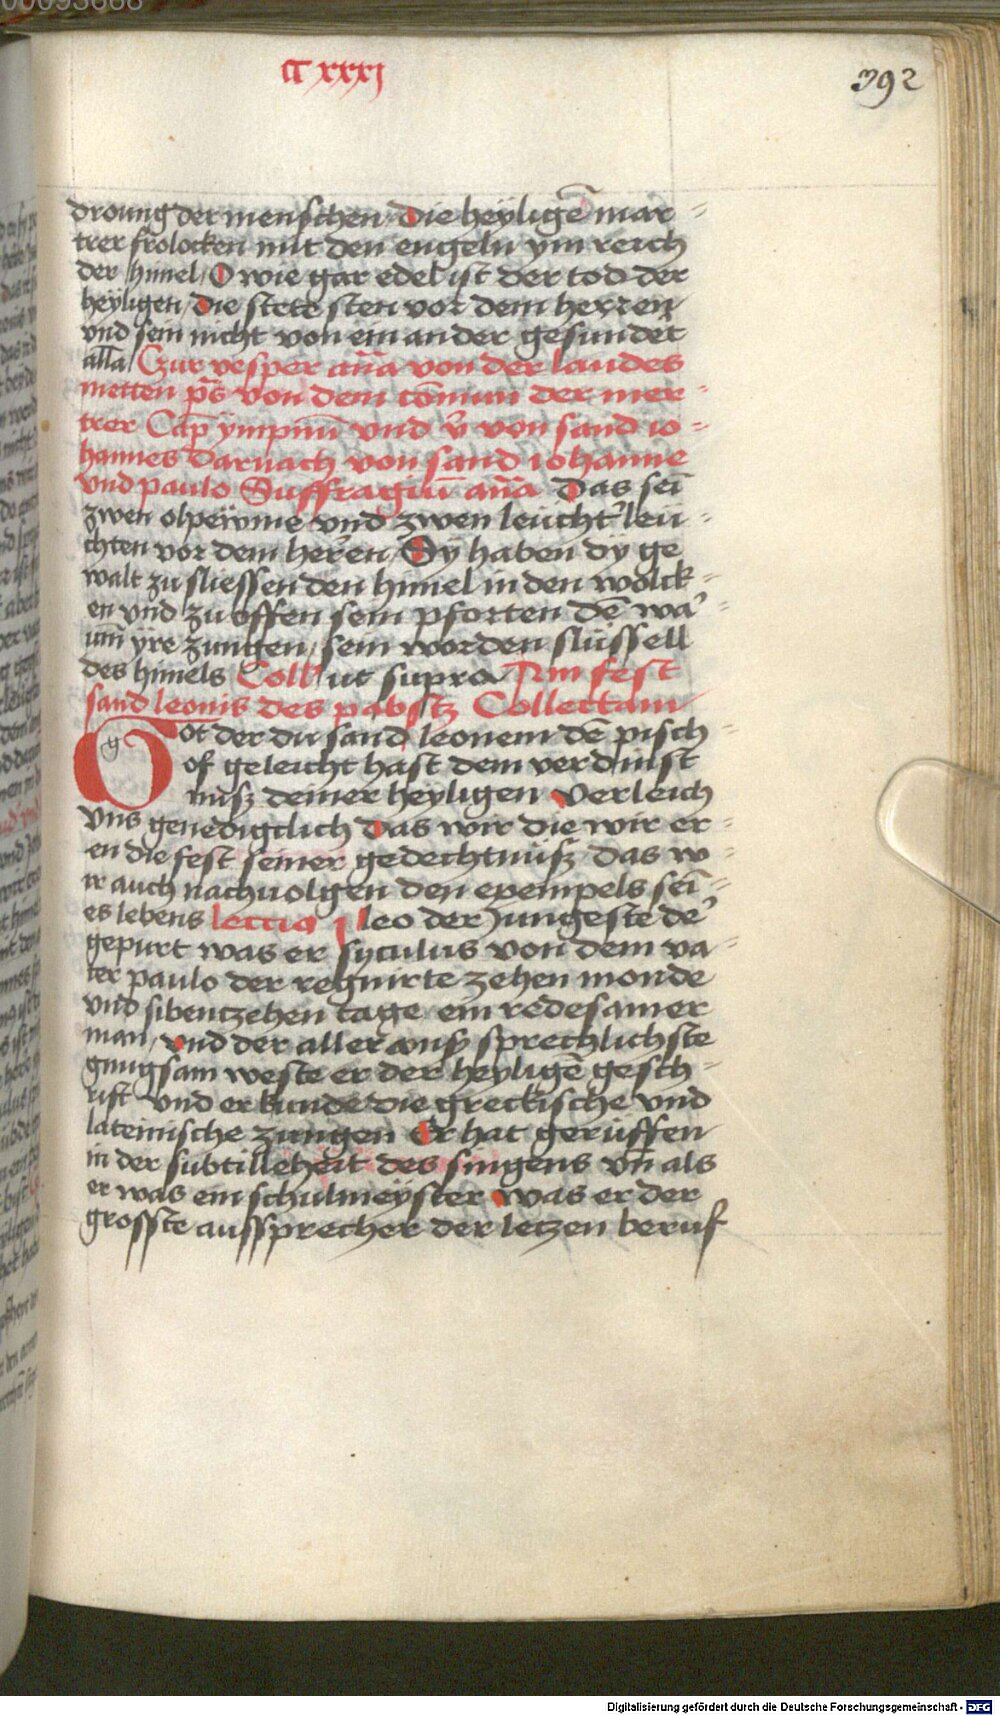 CC xxxj
392
droung der menschen Die heyligē mar-
trer frolocken mit den engeln ym reich
der himel O wie gar edel ist der tod der
heyligen die stete sten vor dem herren
vnd sein nicht von ein ander gesundet
all'a Czur vesper an̄a von der laudes
metten ps̄ von dem com̄un der mer-
trer Cap̄ ympnū vnd v̄ von sand io-
hannes Darnach von sand iohanne
vnd paulo Suffragiū an̄a Das sei
zwen olpewme vnd zwen leucht' leu-
chten vor dem herren Sy haben dy ge
walt zu sliessen den himel in den wolck-
en vnd zu offen sein pforten dē wā
um̄ yre zungen sein worden slussell
des himels Coll' ut supra Am fest
sand leonis des pabstz Collectam
Got der du sand leonem dē pisch-
of geleicht hast dem verdinst
nusz deiner heyligen Verleich
vns genedigclich Das wir die wir er-
en die fest seiner gedechtnusz das w-
ir auch nachuolgen den exempels sei-
es lebens lectio j leo der Jungeste de'
gepurt was er syculus von dem va-
ter paulo der regnirte zehen monde
vnd sibentzehen tage ein redesamer
man vnd der aller aussprechlichste
gnugsam weste er der heyligē gesch-
rift vnd erkunde die greckische vnd
lateinische zungen Er hat geruffen
in der subtilleheit des singens vn̄ als
er was ein schulmeyster was er der
grosste aussprecher der letzen beruf
Digitalisierung gefördert durch die Deutsche Forschungsgemeinschaft - DFG